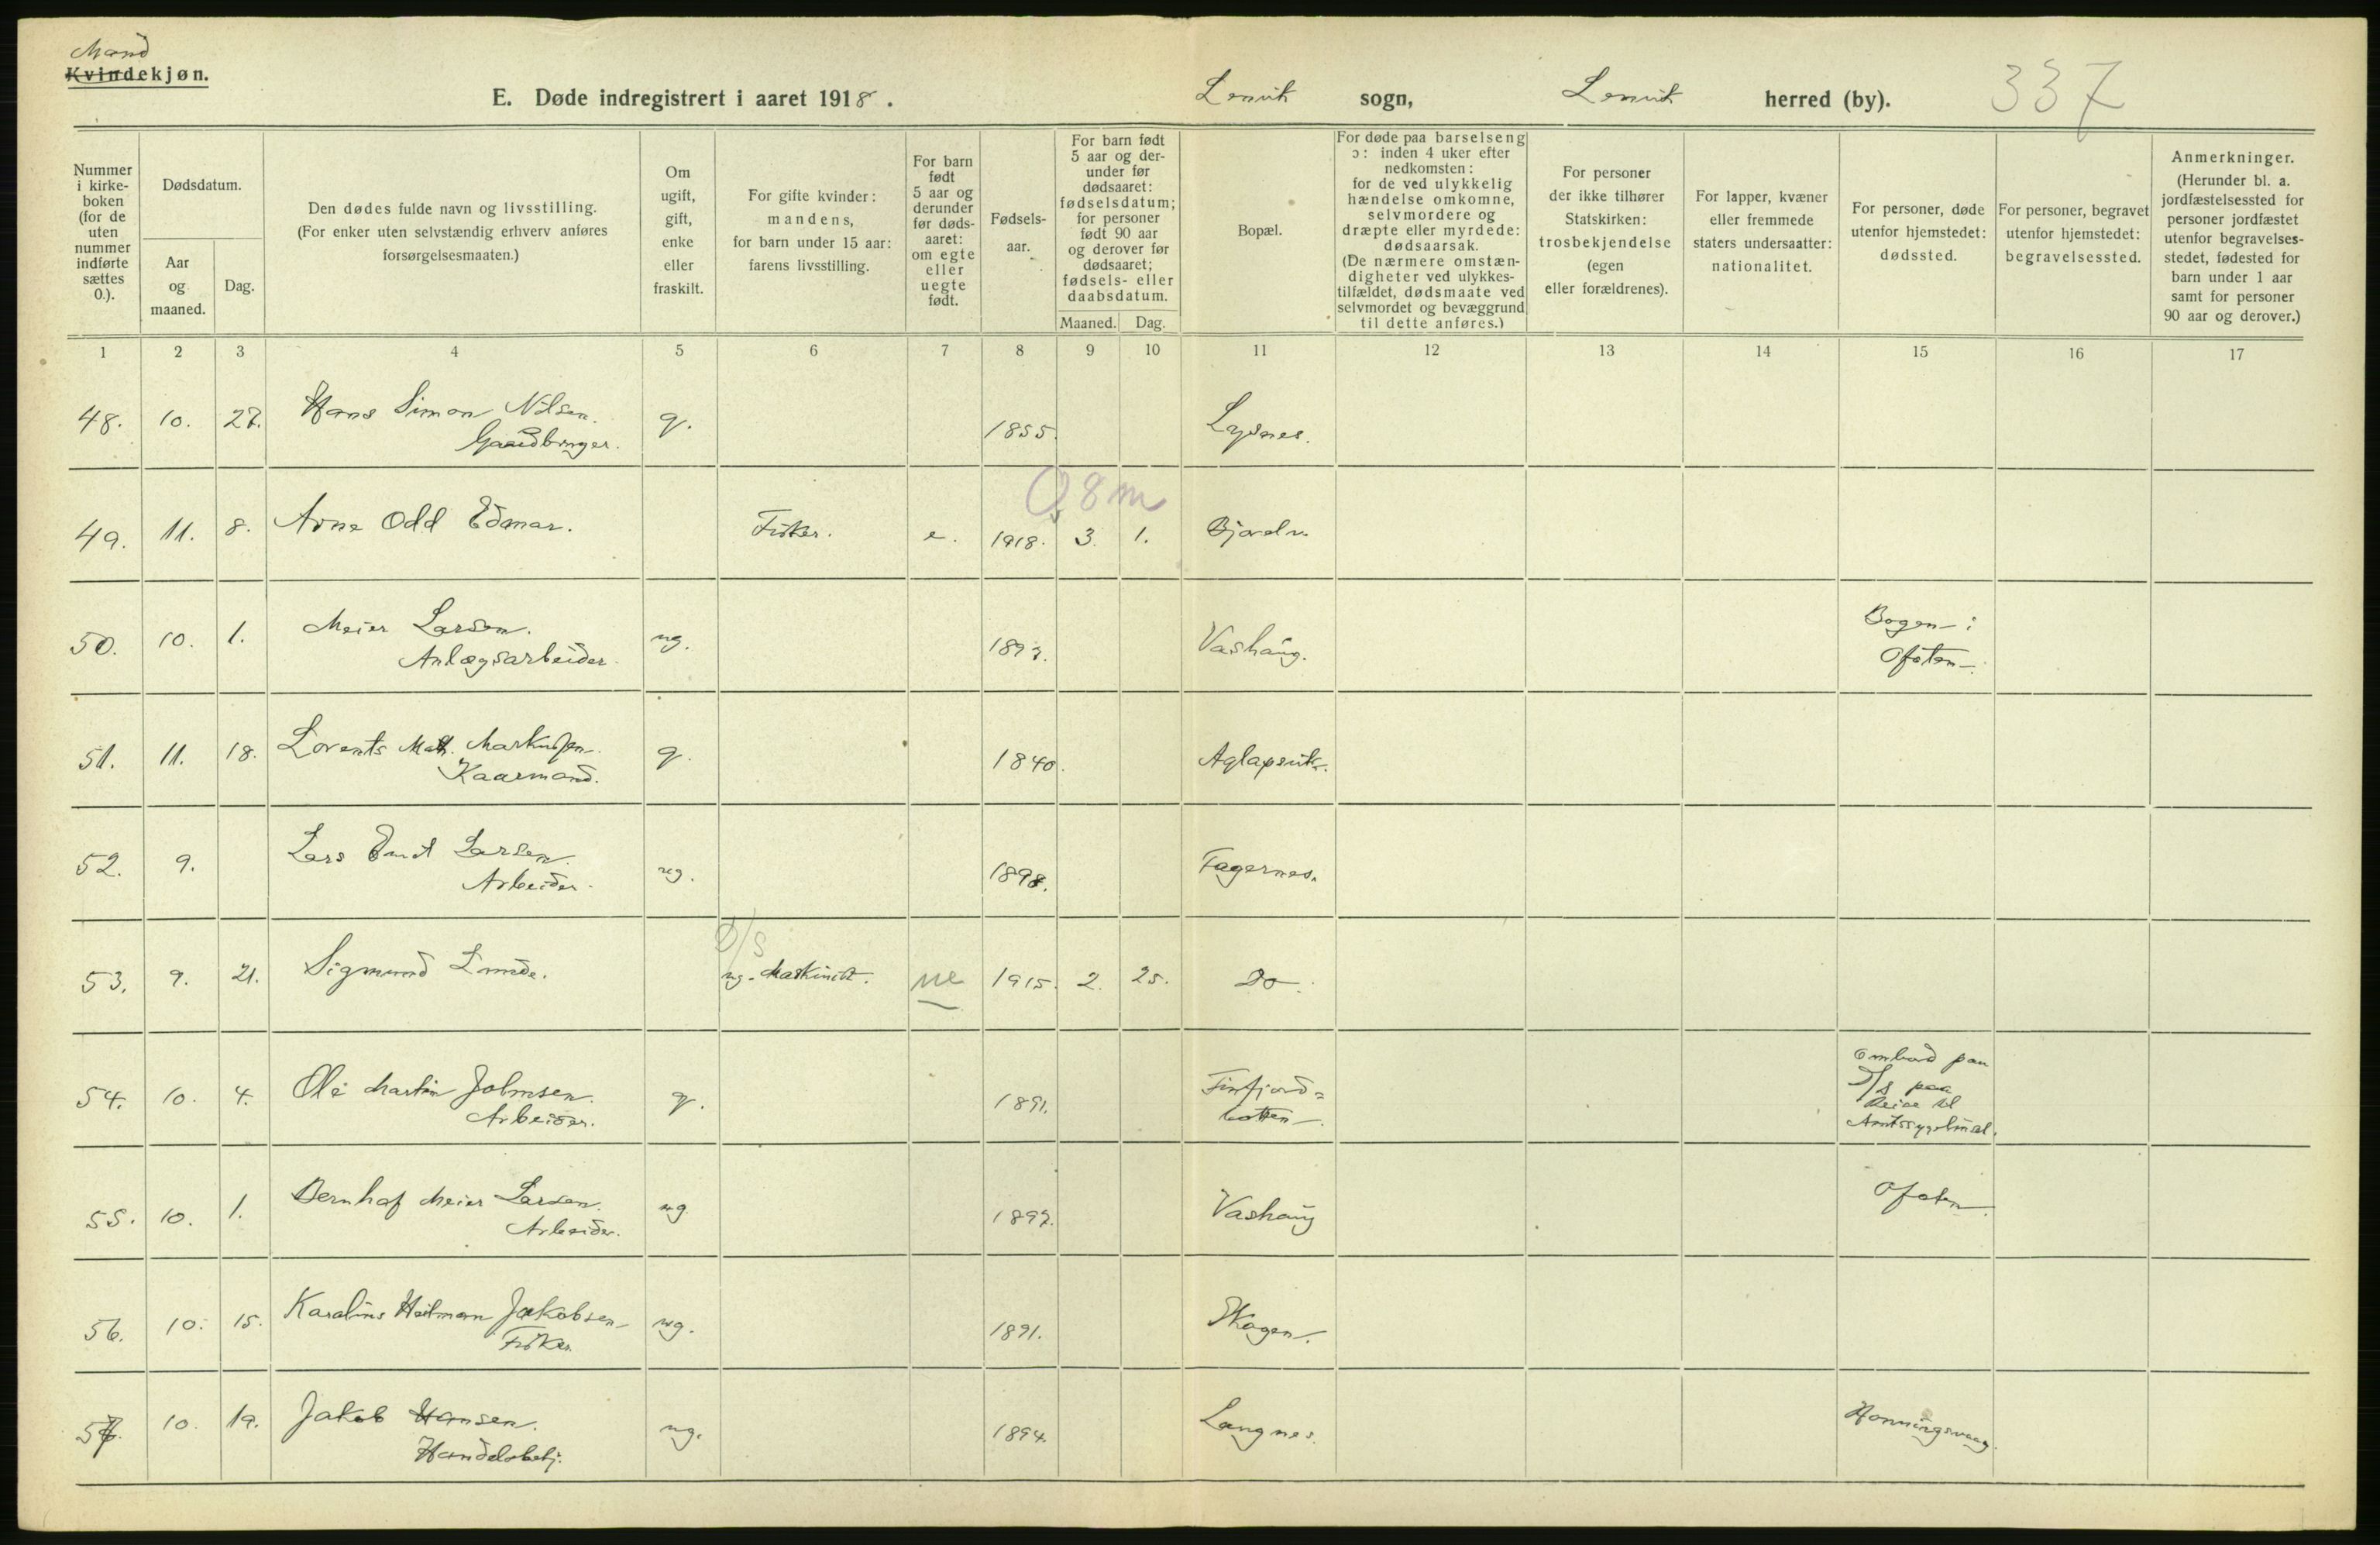 Mand
Kvindekjøn.
E. Døde indregistrert i aaret 1918.
Lenvik sogn,
Lenvik herred (by).
337
Nummer i kirke-boken (for de uten nummer indførte sættes 0.).
Dødsdatum.
Aar og maaned.
Dag.
Den dødes fulde navn og livsstilling.
(For enker uten selvstændig erhverv anføres forsørgelsesmaaten.)
Om ugift, gift, enke eller fraskilt.
For gifte kvinder: mandens, for barn under 15 aar: farens livsstilling.
For barn født 5 aar og derunder før døds-aaret: om egte eller uegte født.
Fødsels-aar.
For barn født 5 aar og der-under før dødsaaret: fødselsdatum; for personer født 90 aar og derover før dødsaaret; fødsels- eller daabsdatum.
Maaned.
Dag.
Bopæl.
For døde paa barselseng ɔ: inden 4 uker efter nedkomsten: for de ved ulykkelig hændelse omkomne, selvmordere og dræpte eller myrdede: dødsaarsak. (De nærmere omstæn-digheter ved ulykkes-tilfældet, dødsmaate ved selvmordet og bevæggrund til dette anføres.)
For personer der ikke tilhører Statskirken: trosbekjendelse (egen eller forældrenes).
For lapper, kvæner eller fremmede staters undersaatter: nationalitet.
For personer, døde utenfor hjemstedet: dødssted.
For personer, begravet utenfor hjemstedet: begravelsessted.
Anmerkninger. (Herunder bl. a. jordfæstelsessted for personer jordfæstet utenfor begravelses-stedet, fødested for barn under 1 aar samt for personer 90 aar og derover.)
1 2 3 4 5 6 7 8 9 10 11 12 13 14 15 16 17
48. 10. 27. Hans Simon Nilsen. g. 1855. Lysnes.
Gaardbruger.
0, 8 m
49. 11. 8. Arne Odd Edmar. Fisker. e. 1918. 3. 1. Bjorelv
50. 10. 1. Meier Larsen. ug. 1893. Vashaug. Bogen i
Anlægsarbeider. Ofoten.
51. 11. 18. Lorents Math. Markussen. g. 1840. Aglapsvik.
Kaarmand.
52. 9. Lars Emil Larsen. ug. 1898. Fagernes.
Arbeider.
D/S
53. 9. 21. Sigmund Lunde. ug. Maskinist. ue 1915. 2. 25. Do.
54. 10. 4. Ole Martin Johnsen. g. 1891. Finfjord= Ombord paa
Arbeider. botten. D/S paa
Reise til
Amtssygehuset.
55. 10. 1. Bernhof Meier Larsen. ug. 1892. Vashaug Ofoten.
Arbeider.
56. 10. 15. Karolius Heitman Jakobsen ug. 1891. Skogen.
Fisker
57. 10. 19. Jakob Hansen. ug. 1894. Langnes. Honningsvaag.
Handelsbetj.